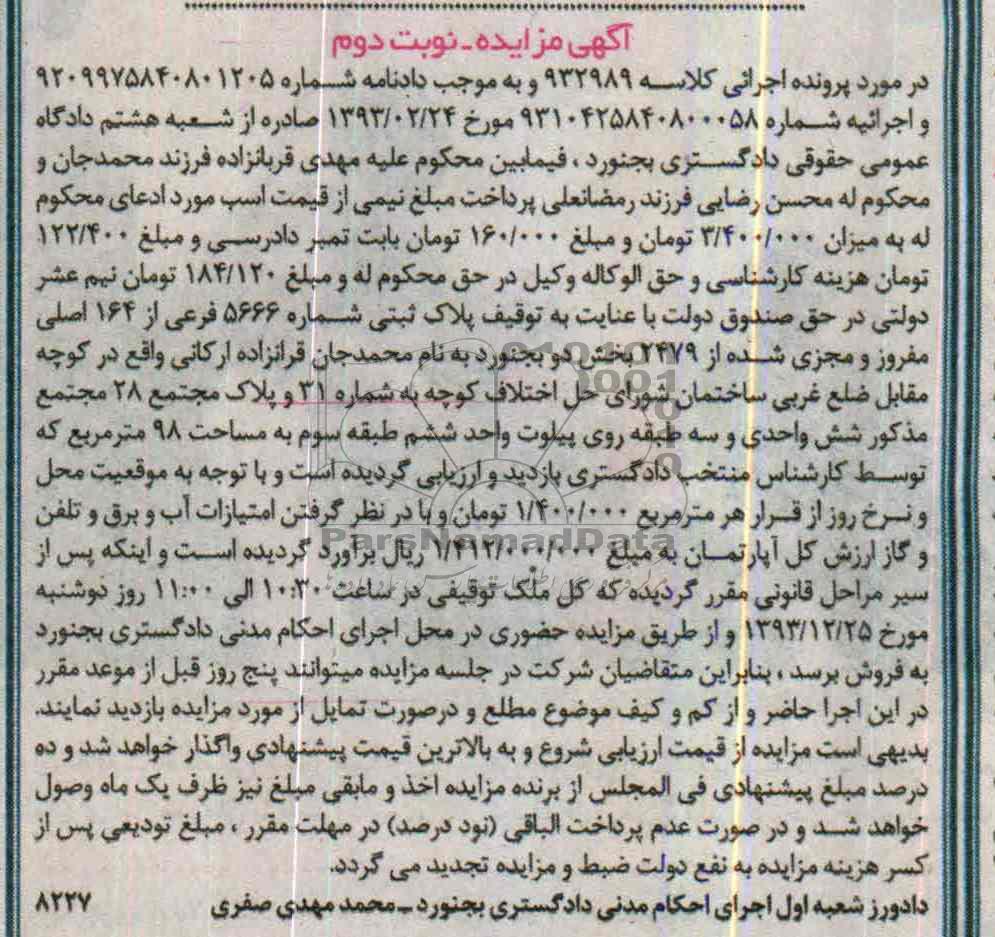 آگهی مزایده ـ نوبت دوم
در مورد پرونده اجرائی کلاسه ۹۳۲۹۸۹ و به موجب دادنامه شماره ۹۲۰۹۹۷۵۸۴۰۸۰۱۲۰۵
و اجرائیه شماره ۹۳۱۰۴۲۵۸۴۰۸۰۰۰۵۸ مورخ ۱۳۹۳/۰۲/۲۴ صادره از شعبه هشتم دادگاه
عمومی حقوقی دادگستری بجنورد ، فیمابین محکوم علیه مهدی قربانزاده فرزند محمدجان و
محکوم له محسن رضایی فرزند رمضانعلی پرداخت مبلغ نیمی از قیمت اسب مورد ادعای محکوم
له به میزان ۳/۴۰۰/۰۰۰ تومان و مبلغ ۱۶۰/۰۰۰ تومان بابت تمبر دادرسی و مبلغ ۱۲۲/۴۰۰
تومان هزینه کارشناسی و حق الوکاله وکیل در حق محکوم له و مبلغ ۱۸۴/۱۲۰ تومان نیم عشر
دولتی در حق صندوق دولت با عنایت به توقیف پلاک ثبتی شماره ۵۶۶۶ فرعی از ۱۶۴ اصلی
مفروز و مجزی شده از ۲۴۷۹ بخش دو بجنورد به نام محمدجان قرانزاده ارکانی واقع در کوچه
مقابل ضلع غربی ساختمان شورای حل اختلاف کوچه به شماره ۳۱ و پلاک مجتمع ۲۸ مجتمع
مذکور شش واحدی و سه طبقه روی پیلوت واحد ششم طبقه سوم به مساحت ۹۸ مترمربع که
توسط کارشناس منتخب دادگستری بازدید و ارزیابی گردیده است و با توجه به موقعیت محل
و نرخ روز از قرار هر مترمربع ۱/۴۰۰/۰۰۰ تومان و با در نظر گرفتن امتیازات آب و برق و تلفن
و گاز ارزش کل آپارتمان به مبلغ ۱/۴۱۲/۰۰۰/۰۰۰ ریال برآورد گردیده است و اینکه پس از
سیر مراحل قانونی مقرر گردیده که کل ملک توقیفی در ساعت ۱۰:۳۰ الی ۱۱:۰۰ روز دوشنبه
مورخ ۱۳۹۳/۱۲/۲۵ و از طریق مزایده حضوری در محل اجرای احکام مدنی دادگستری بجنورد
به فروش برسد ، بنابراین متقاضیان شرکت در جلسه مزایده میتوانند پنج روز قبل از موعد مقرر
در این اجرا حاضر و از کم و کیف موضوع مطلع و درصورت تمایل از مورد مزایده بازدید نمایند.
بدیهی است مزایده از قیمت ارزیابی شروع و به بالاترین قیمت پیشنهادی واگذار خواهد شد و ده
درصد مبلغ پیشنهادی فی المجلس از برنده مزایده اخذ و مابقی مبلغ نیز ظرف یک ماه وصول
خواهد شد و در صورت عدم پرداخت الباقی (نود درصد) در مهلت مقرر ، مبلغ تودیعی پس از
کسر هزینه مزایده به نفع دولت ضبط و مزایده تجدید می گردد.
دادورز شعبه اول اجرای احکام مدنی دادگستری بجنورد ـ محمد مهدی صفری ۸۲۳۷
ParsNamadData